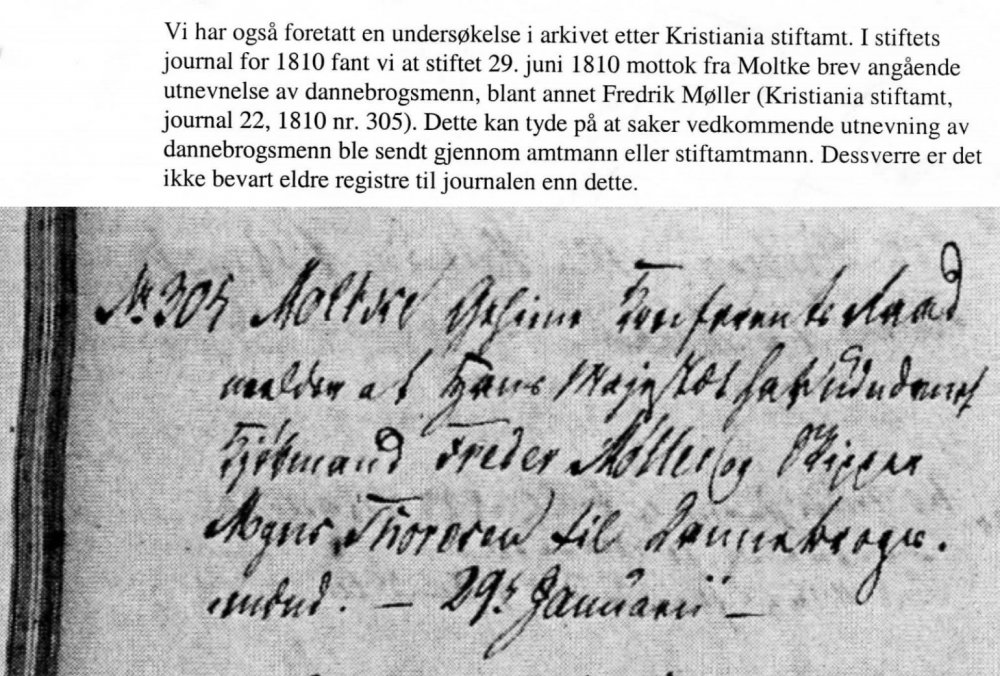 Vi har også foretatt en undersøkelse i arkivet etter Kristiania stiftamt. I stiftets
journal for 1810 fant vi at stiftet 29. juni 1810 mottok fra Moltke brev angående
utnevnelse av dannebrogsmenn, blant annet Fredrik Møller (Kristiania stiftamt,
journal 22, 1810 nr. 305). Dette kan tyde på at saker vedkommende utnevning av
dannebrogsmenn ble sendt gjennom amtmann eller stiftamtmann. Dessverre er det
ikke bevart eldre registre til journalen enn dette.
No 305 Moltke Geheime Conferents Raad
melder at Hans Majestæt har udnævnt
Kjøbmand Freder Møller og Skipper
Mogns Thoresen til Dannebrogs.
mænd. — 29 Januarii —